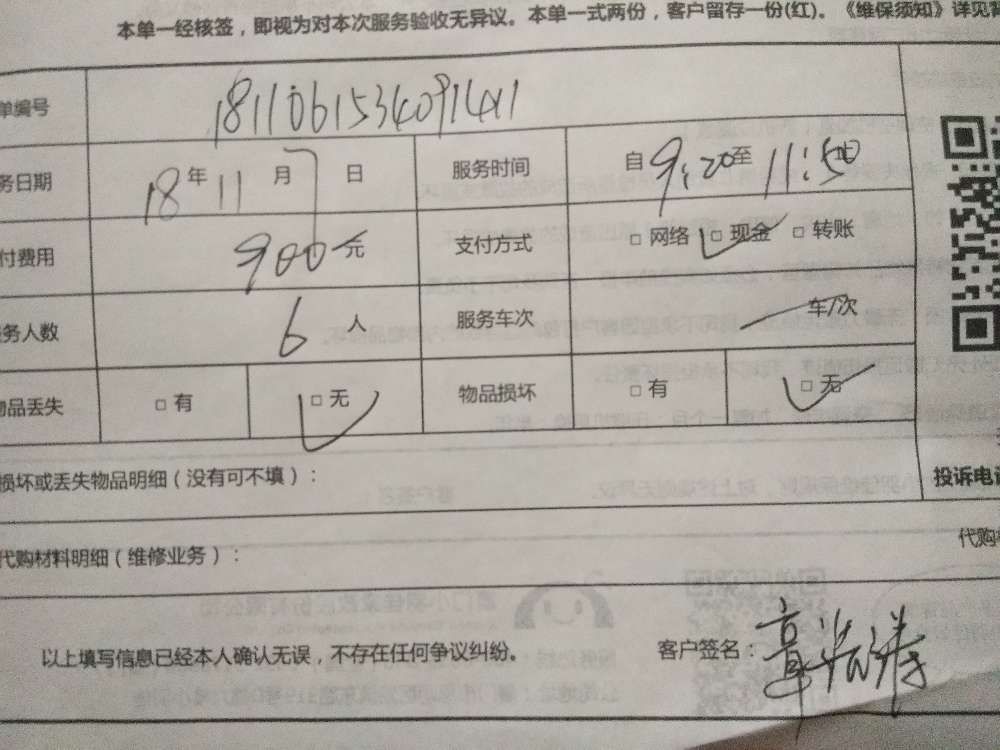 本单一经核签，即视为对本次服务验收无异议。本单一式两份，客户留存一份(红)。《维保须知》详见背
单编号 1811061534091411
务日期 18 年 11 月 7 日 服务时间 自 9:20 至 11:50
付费用 900 元 支付方式 □ 网络 □ 现金 □ 转账
务人数 6 人 服务车次 车/次
物品丢失 □ 有 □ 无 物品损坏 □ 有 □ 无
损坏或丢失物品明细（没有可不填）：
投诉电话
代购材料明细（维修业务）：
代购
以上填写信息已经本人确认无误，不存在任何争议纠纷。 客户签名：